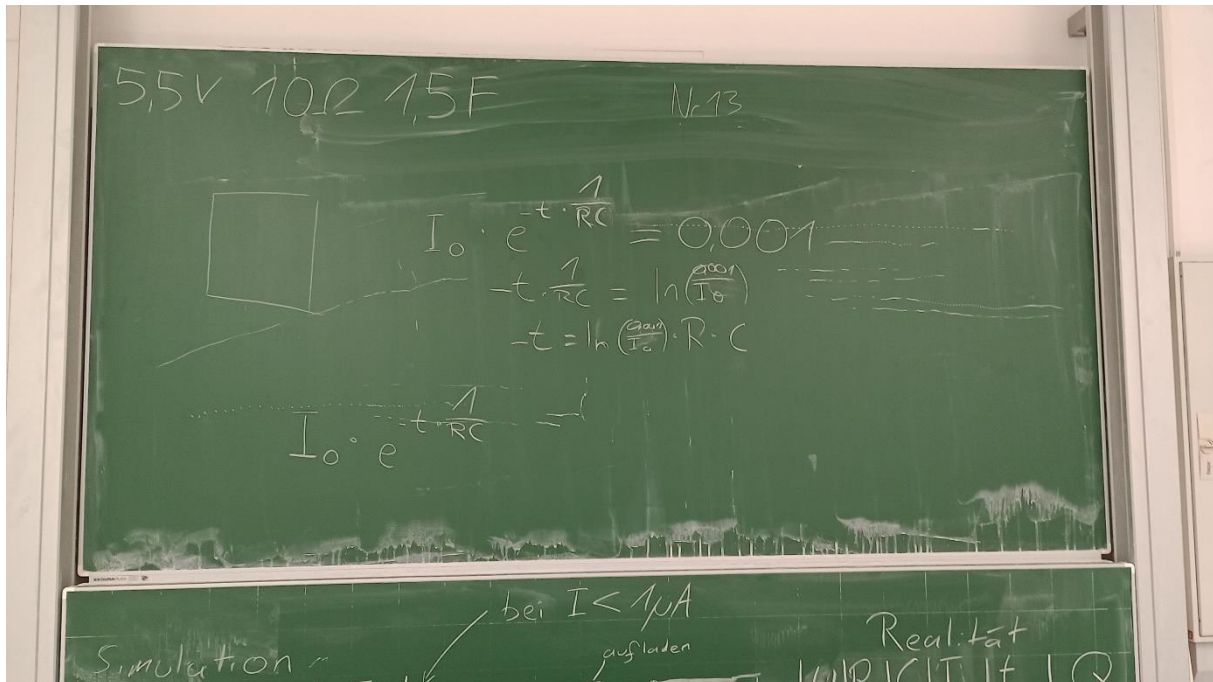 5,5V 10Ω 1,5F
Nr 13
I₀ · e^(-t · 1/RC) = 0,001
-t · 1/RC = ln(0,001/I₀)
-t = ln(0,001/I₀) · R · C
I₀ · e^(-t · 1/RC) =
bei I < 1µA
Simulation
aufladen
Realität